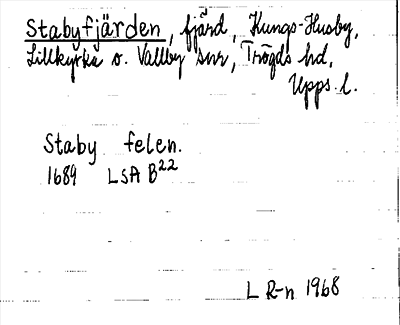 Stabyfjärden, fjärd, Kungs-Husby,
Lillkyrka o. Vallby snr, Trögds hd,
Upps. l.
Staby felen.
1689 LSA B22
L R-n 1968